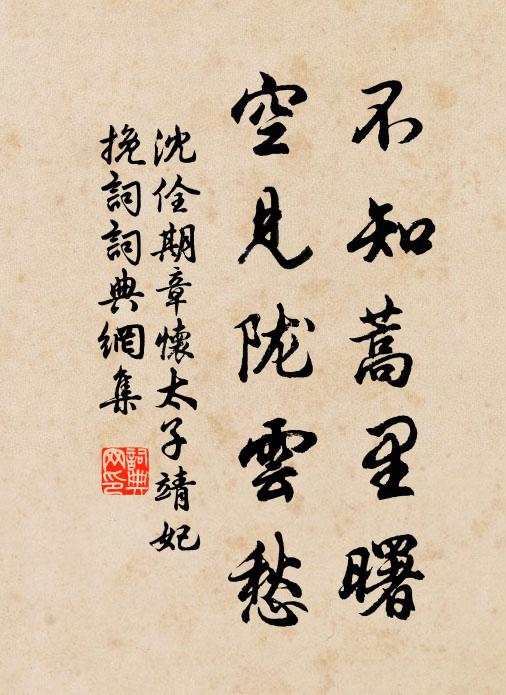 不知蒿里曙
空見陇雲愁
沈佺期章懷太子靖妃
挽詞詞典網集
詞典网印